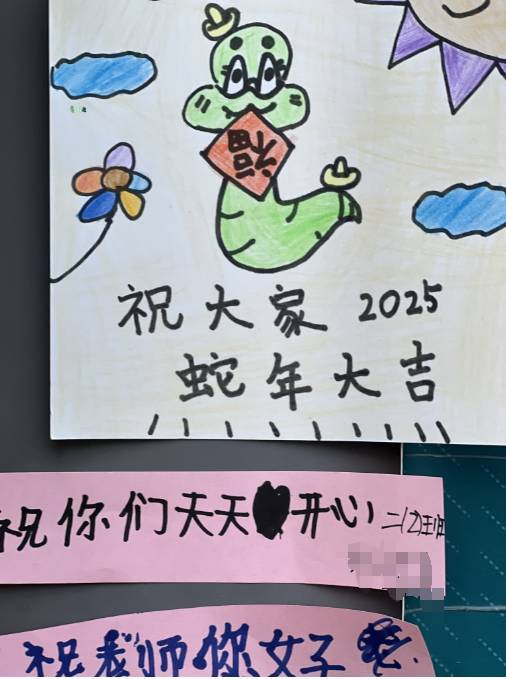 福
祝大家2025
蛇年大吉
祝你们天天开心 二(2)班
祝老师你女子